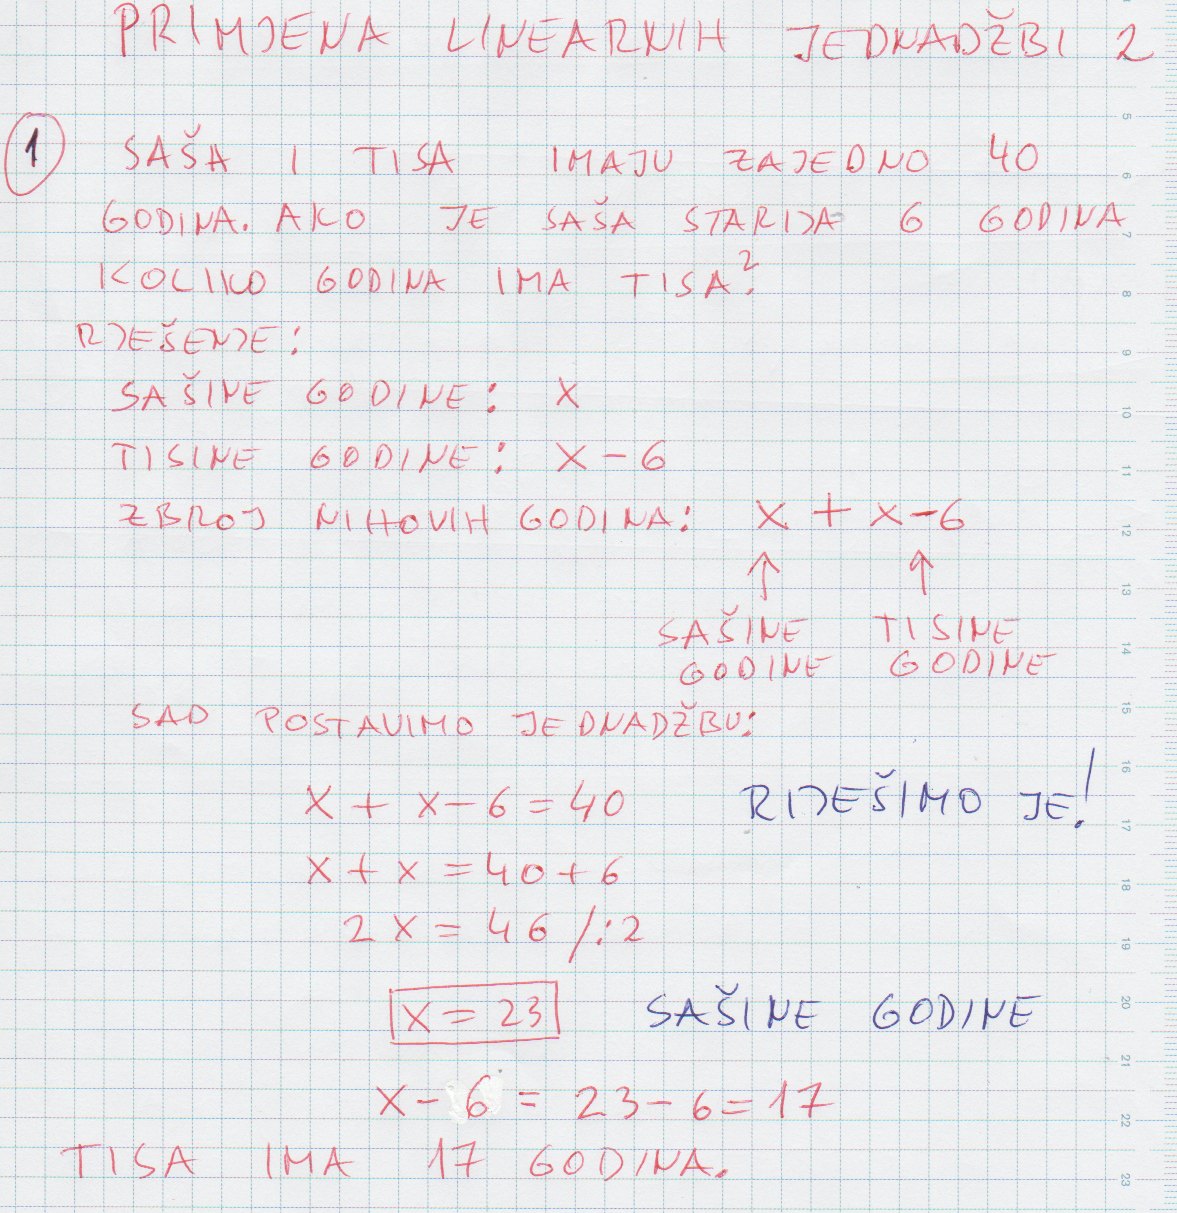 PRIMJENA LINEARNIH JEDNADŽBI 2
1 SAŠA I TISA IMAJU ZAJEDNO 40
GODINA. AKO JE SAŠA STARIJA 6 GODINA
KOLIKO GODINA IMA TISA?
RJEŠENJE:
SAŠINE GODINE: X
TISINE GODINE: X - 6
ZBROJ NIHOVIH GODINA: X + X - 6
↑ ↑
SAŠINE TISINE
GODINE GODINE
SAD POSTAVIMO JEDNADŽBU:
X + X - 6 = 40 RIJEŠIMO JE!
X + X = 40 + 6
2X = 46 /:2
X = 23 SAŠINE GODINE
X - 6 = 23 - 6 = 17
TISA IMA 17 GODINA.
5
6
7
8
9
10
11
12
13
14
15
16
17
18
19
20
21
22
23